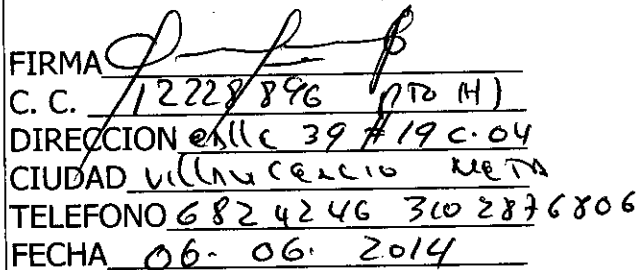 FIRMA
C. C. 12228896 PTO (H)
DIRECCION calle 39 # 19 c. 04
CIUDAD Villavicencio META
TELEFONO 6824246 3102876806
FECHA 06. 06. 2014